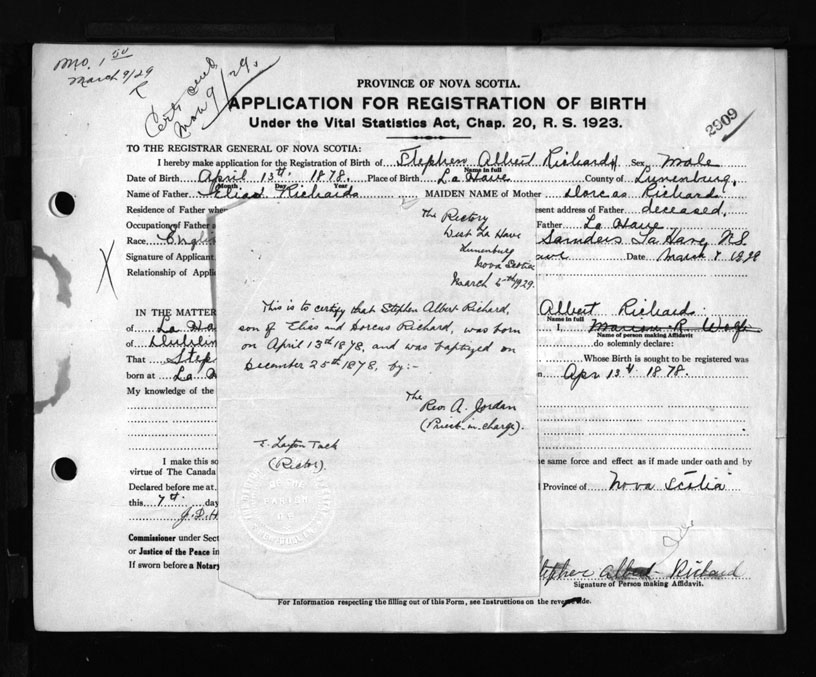 Mo. 1 50
March 9/29
Cert send
Mar 9/29.
PROVINCE OF NOVA SCOTIA.
APPLICATION FOR REGISTRATION OF BIRTH
Under the Vital Statistics Act, Chap. 20, R. S. 1923.
2909
TO THE REGISTRAR GENERAL OF NOVA SCOTIA:
I hereby make application for the Registration of Birth of Stephen Albert Richard Sex Male
Name in full
Date of Birth April 13th 1878. Place of Birth La Have County of Lunenburg,
Month Day Year
Name of Father Elias Richards MAIDEN NAME of Mother Dorcas Richard
Residence of Father whe esent address of Father deceased,
Occupation of Father Father La Have
Race English Sarnders La Have N.S.
Signature of Applicant Date March
Relationship of Appli
The Rectory
West La Have
Lunenburg
Nova Scotia
March 5th 1929.
This is to certify that Stephen Albert Richard,
son of Elias and Dorcus Richard, was born
on April 13th 1878, and was baptized on
December 25th 1878, by:-
The
Rev. A. Jordan
(Priest-in-charge).
E. Layton Tuck
(Rector).
IN THE MATTER Albert Richards
Name in full
of La Ha I, Marion R. Wolfe
Name of person making Affidavit
of Dublin do solemnly declare:
That Step Whose Birth is sought to be registered was
born at La H n Apr 13th 1878.
My knowledge of the
I make this so he same force and effect as if made under oath and by
virtue of The Canada
Declared before me at Province of Nova Scotia
this 7th day
J. D. H
Commissioner under Sect
or Justice of the Peace in
If sworn before a Notary
Stephen Albert Richard
Signature of Person making Affidavit.
For Information respecting the filling out of this Form, see Instructions on the reverse side.